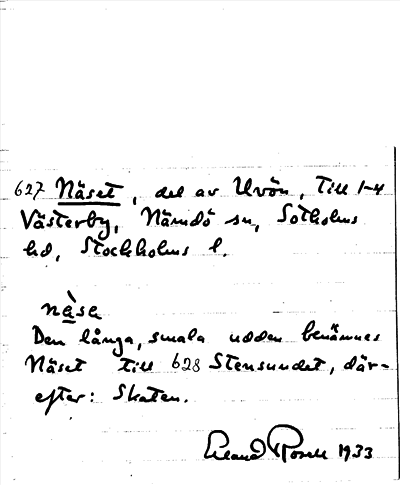 627 Näset, del av Uvön, Till 1-4
Västerby, Nämdö sn, Sotholms
hd, Stockholms l.
nä̀sə
Den långa, smala udden benämnes
Näset till 628 Stensundet, där-
efter: Skaten.
Erland Rosell 1933